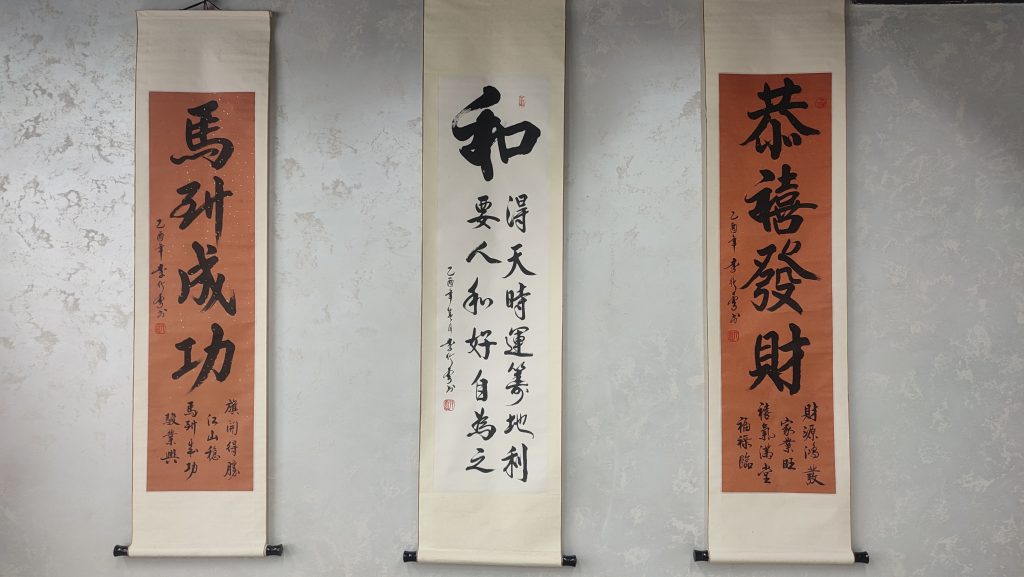 恭禧發財
財源鴻發
家業旺
禧氣滿堂
福祿臨
乙酉年
和
得天時運籌地利
要人和好自為之
乙酉年
馬到成功
旗開得勝
江山穩
馬到成功
駿業興
乙酉年